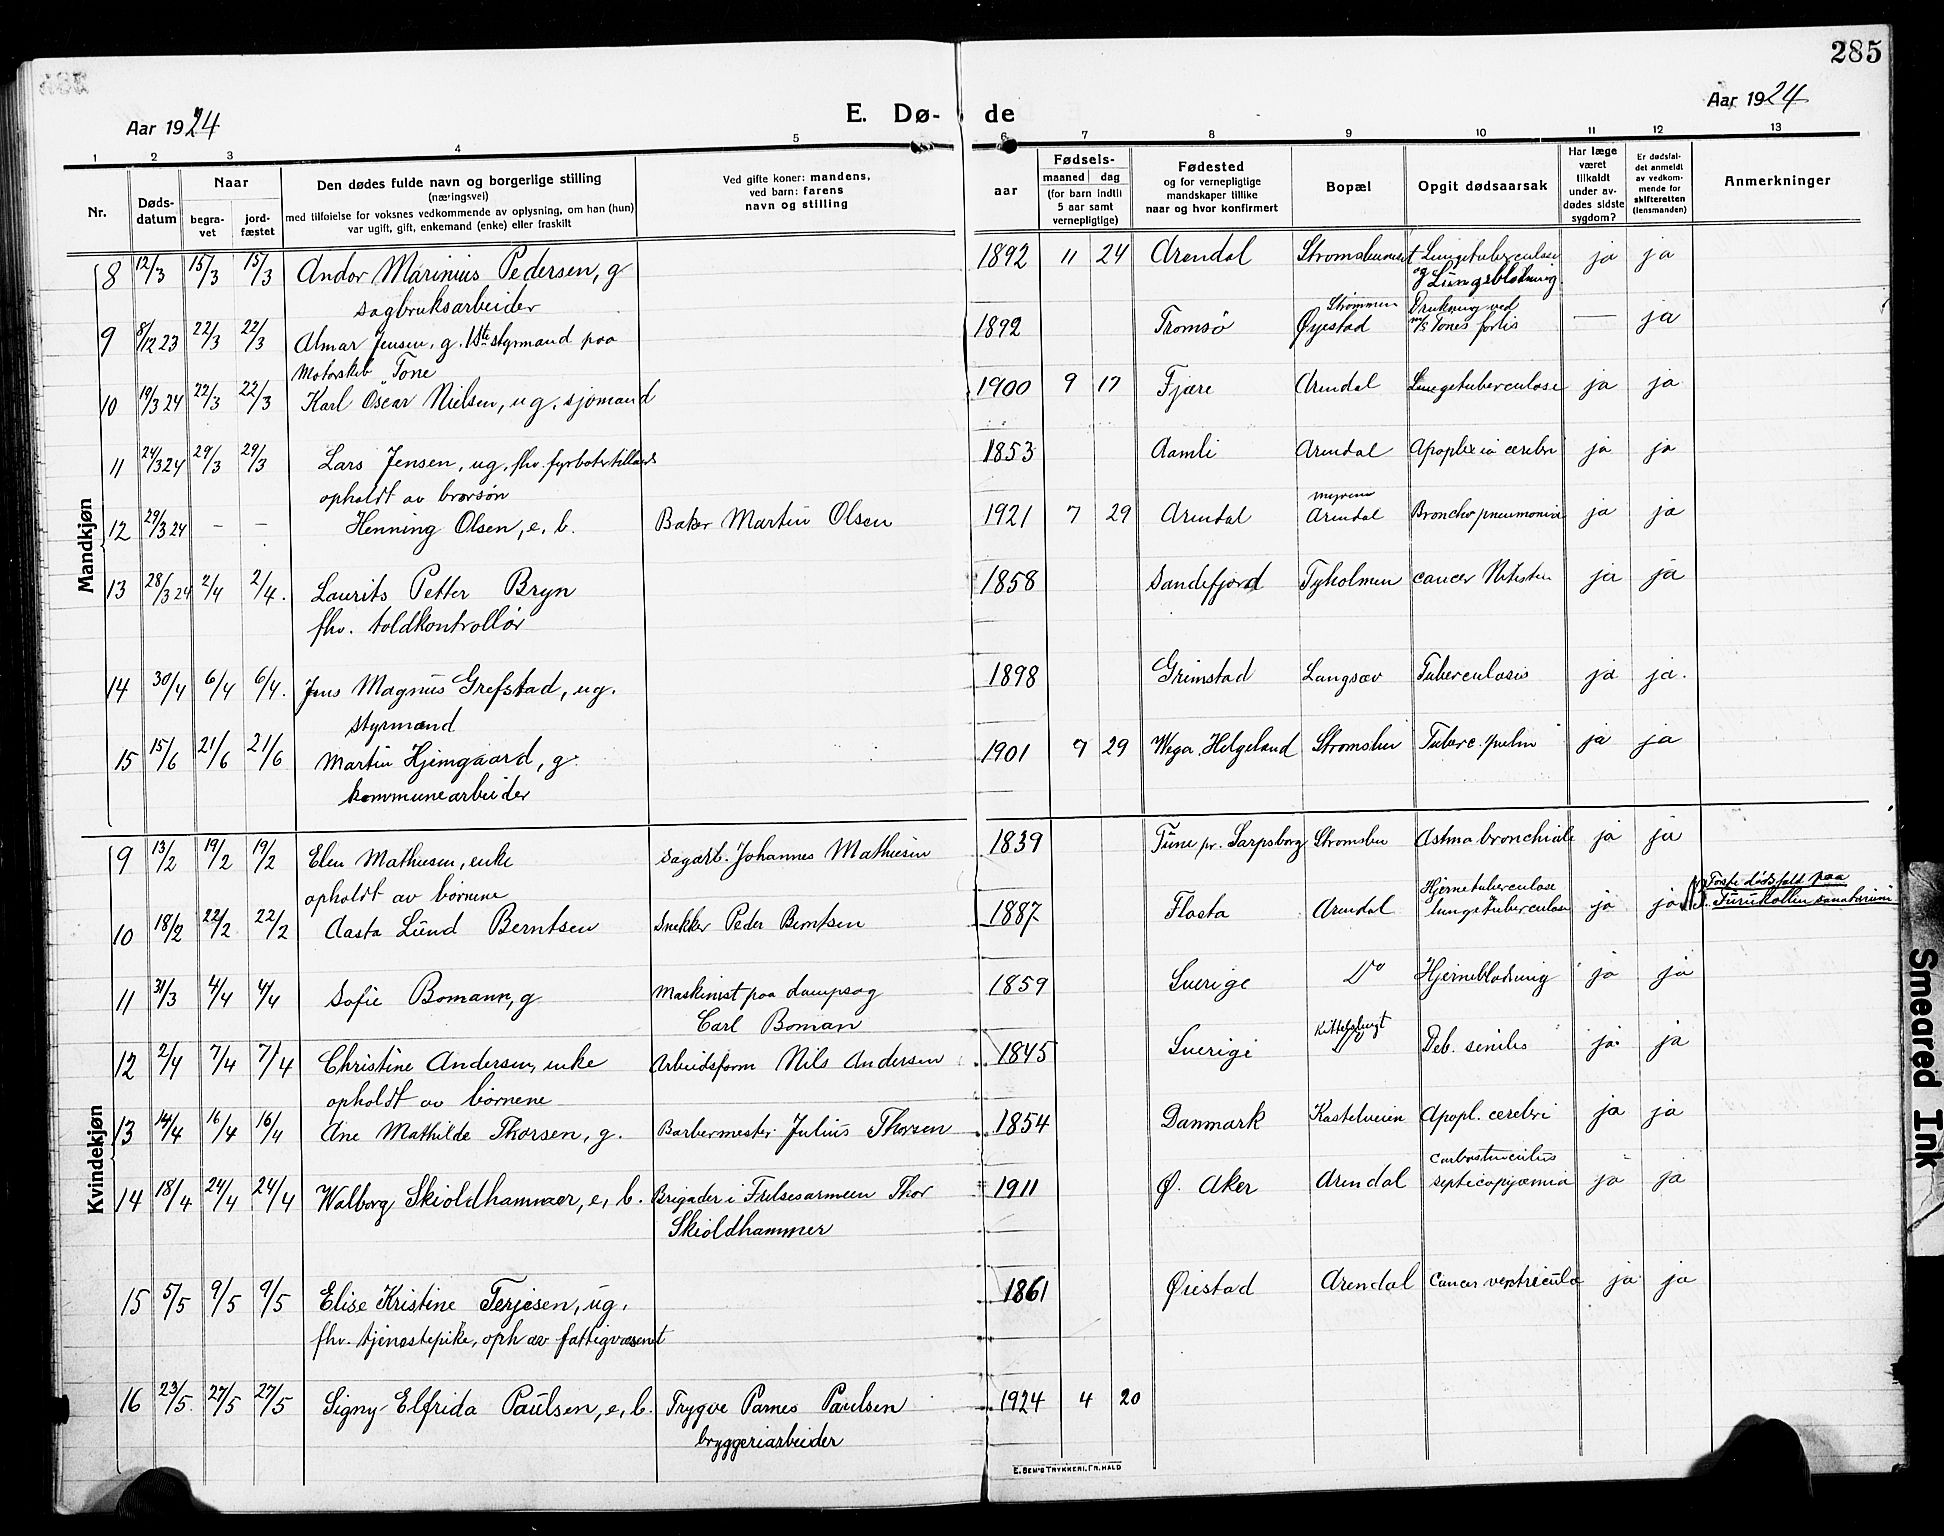 285
Aar 1924
E. Dø-
de
Aar 1924
1 2 3 4 5 6 7 8 9 10 11 12 13
Nr.
Døds-
datum
Naar
begra-
vet
jord-
fæstet
Den dødes fulde navn og borgerlige stilling
(næringsvei)
med tilføielse for voksnes vedkommende av oplysning, om han (hun)
var ugift, gift, enkemand (enke) eller fraskilt
Ved gifte koner: mandens,
ved barn: farens
navn og stilling
Fødsels-
aar
maaned dag
(for barn indtil
5 aar samt
vernepligtige)
Fødested
og for vernepligtige
mandskaper tillike
naar og hvor konfirmert
Bopæl
Opgit dødsaarsak
Har læge
været
tilkaldt
under av-
dødes sidste
sygdom?
Er dødsfal-
det anmeldt
av vedkom-
mende for
skifteretten
(lensmanden)
Anmerkninger
Mandkjøn
8 12/3 15/3 15/3 Andor Marinius Pedersen, g 1892 11 24 Arendal Strømsbuneset Lungetuberculose ja ja
sagbruksarbeider og Lungeblødning
9 8/12 23 22/3 22/3 Almar Jensen, g. 1ste styrmand paa 1892 Tromsø Strømmen Øyestad Drukning ved m/s Tones forlis — ja
Motorskib "Tone
10 19/3 24 22/3 22/3 Karl Oscar Nielsen, ug. sjømand 1900 9 17 Fjære Arendal Lungetuberculose ja ja
11 24/3 24 29/3 29/3 Lars Jensen, ug, fhv. 1853 Aamli Arendal Apoplexia cerebri ja ja
opholdt av brorsøn
12 29/3 24 – – Henning Olsen, e. b. Baker Martin Olsen 1921 7 29 Arendal Myrene Arendal Broncho pneumonia ja ja
13 28/3 24 2/4 2/4. Laurits Petter Bryn 1858 Sandefjord Tyholmen cancer ja ja
fhv. toldkontrollør
14 30/4 6/4 6/4. Jens Magnus Grefstad, ug. 1898 Grimstad Langsæv Tuberculosis ja ja.
styrmand
15 15/6 21/6 21/6 Martin Hjemgaard, g. 1901 9 29 Wega, Helgeland Strømsbu Tuberc. pulm ja ja
kommunearbeider
Kvindekjøn
9 13/2 19/2 19/2 Elen Mathiesen, enke sagarb. Johannes Mathiesen 1839 Tune pr. Sarpsborg Strømsbu Astma bronchiale ja ja
opholdt av børnene
10 18/2 22/2 22/2 Aasta Lund Berntsen Snekker Peder Berntsen 1887 Flosta Arendal Hjernetuberculose lungetuberculose ja ja Tosfe dødsfald paa Furukollen sanatorium
11 31/3 4/4 4/4 Sofie Bomann, g Maskinist paa dampsag 1859 Sverige Do Hjerneblødning ja ja
Carl Boman
12 2/4 7/4 7/4 Christine Andersen, enke Arbeidsform Nils Andersen 1845 Sverige Kittelsbugt Deb. senilis ja ja
opholdt av børnene
13 14/4 16/4 16/4 Ane Mathilde Thorsen, g. Barbermester Julius Thorsen 1854 Danmark Kastelveien Apopl. cerebri ja ja
14 18/4 24/4 24/4 Walborg Skioldhammer, e. b. Brigader i Frelsesarmeen Thor 1911 Ø. Aker Arendal septicopyæmia ja ja
Skioldhammer
15 5/5 9/5 9/5 Elise Kristine Terjesen, ug. 1861 Øiestad Arendal Cancer ventricula ja ja
fhv. tjenestepike, oph av fattigvæsenet
16 23/5. 27/5 27/5 Signy Elfrida Paulsen, e. b. Trygve Parnes Paulsen 1924 4 20
bryggeriarbeider
E. SEM'S TRYKKERI, FR.HALD
Smeared Ink